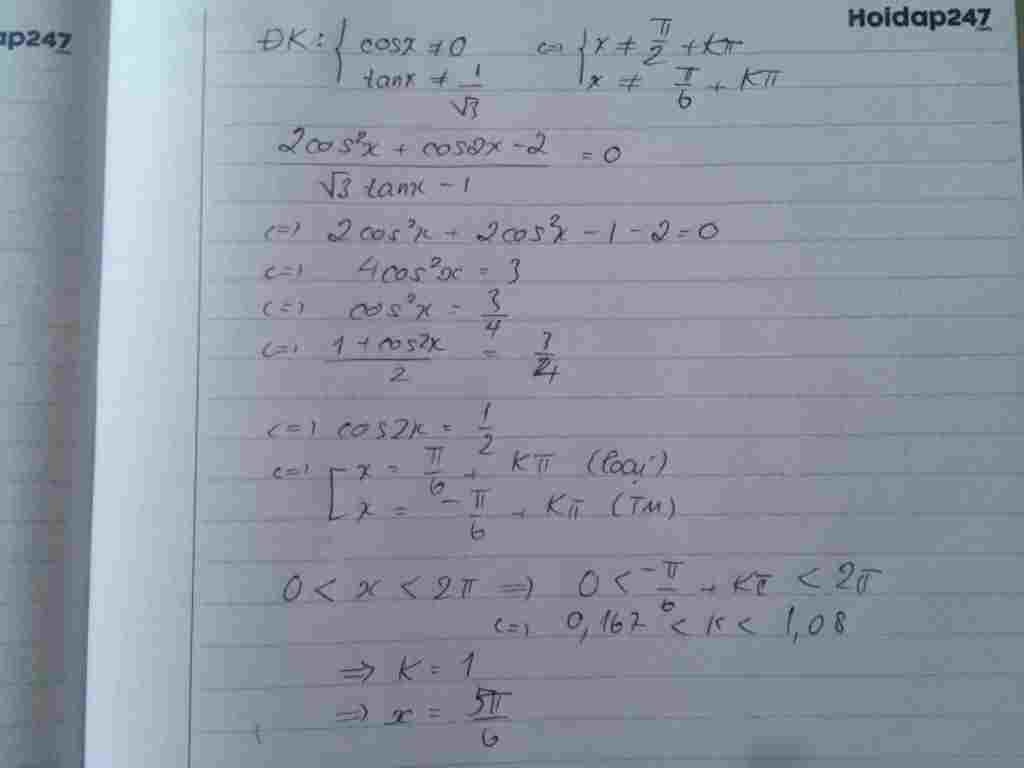 ap247
Hoidap247
ĐK: { cosx ≠ 0 <=> { x ≠ π/2 + Kπ
tanx ≠ 1/√3 x ≠ π/6 + Kπ
(2cos²x + cos2x - 2)/(√3 tanx - 1) = 0
<=> 2cos²x + 2cos²x - 1 - 2 = 0
<=> 4cos²x = 3
<=> cos²x = 3/4
<=> (1 + cos2x)/2 = 3/4
<=> cos2x = 1/2
<=> [ x = π/6 + Kπ (loại)
x = -π/6 + Kπ (TM)
0 < x < 2π => 0 < -π/6 + Kπ < 2π
<=> 0,167 < K < 1,08
=> K = 1
=> x = 5π/6